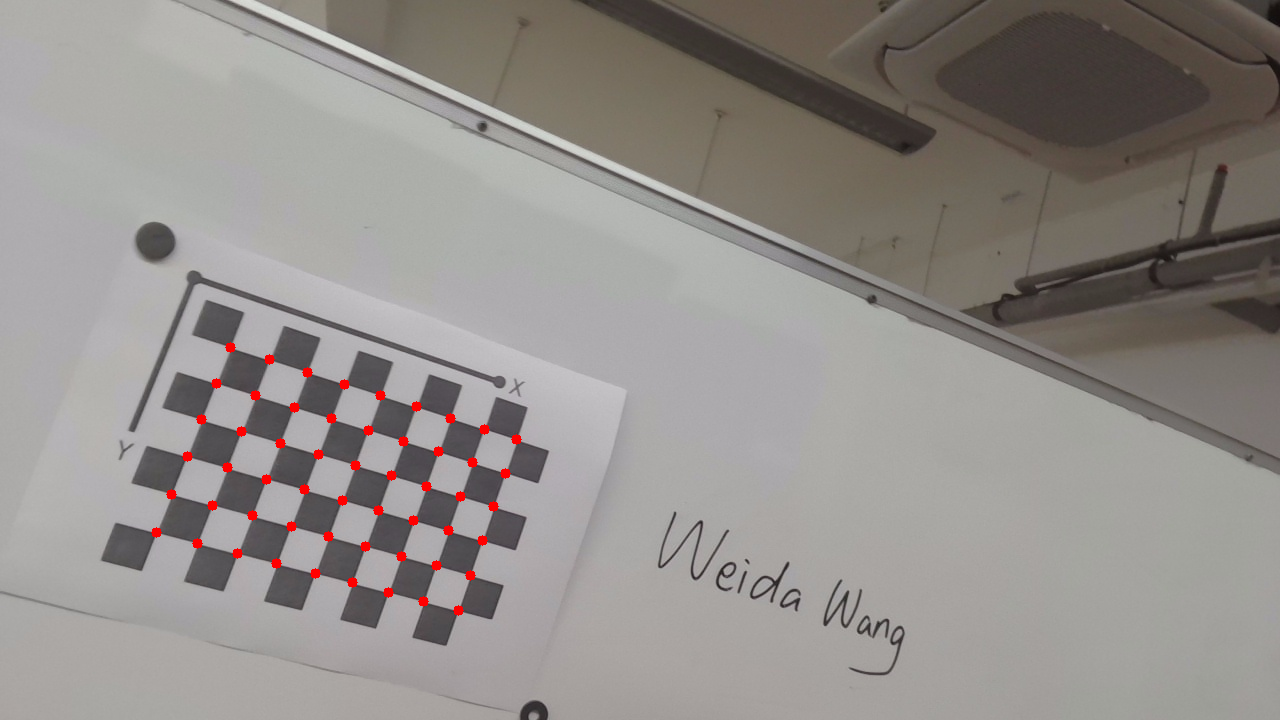 X
Y
Weida Wang